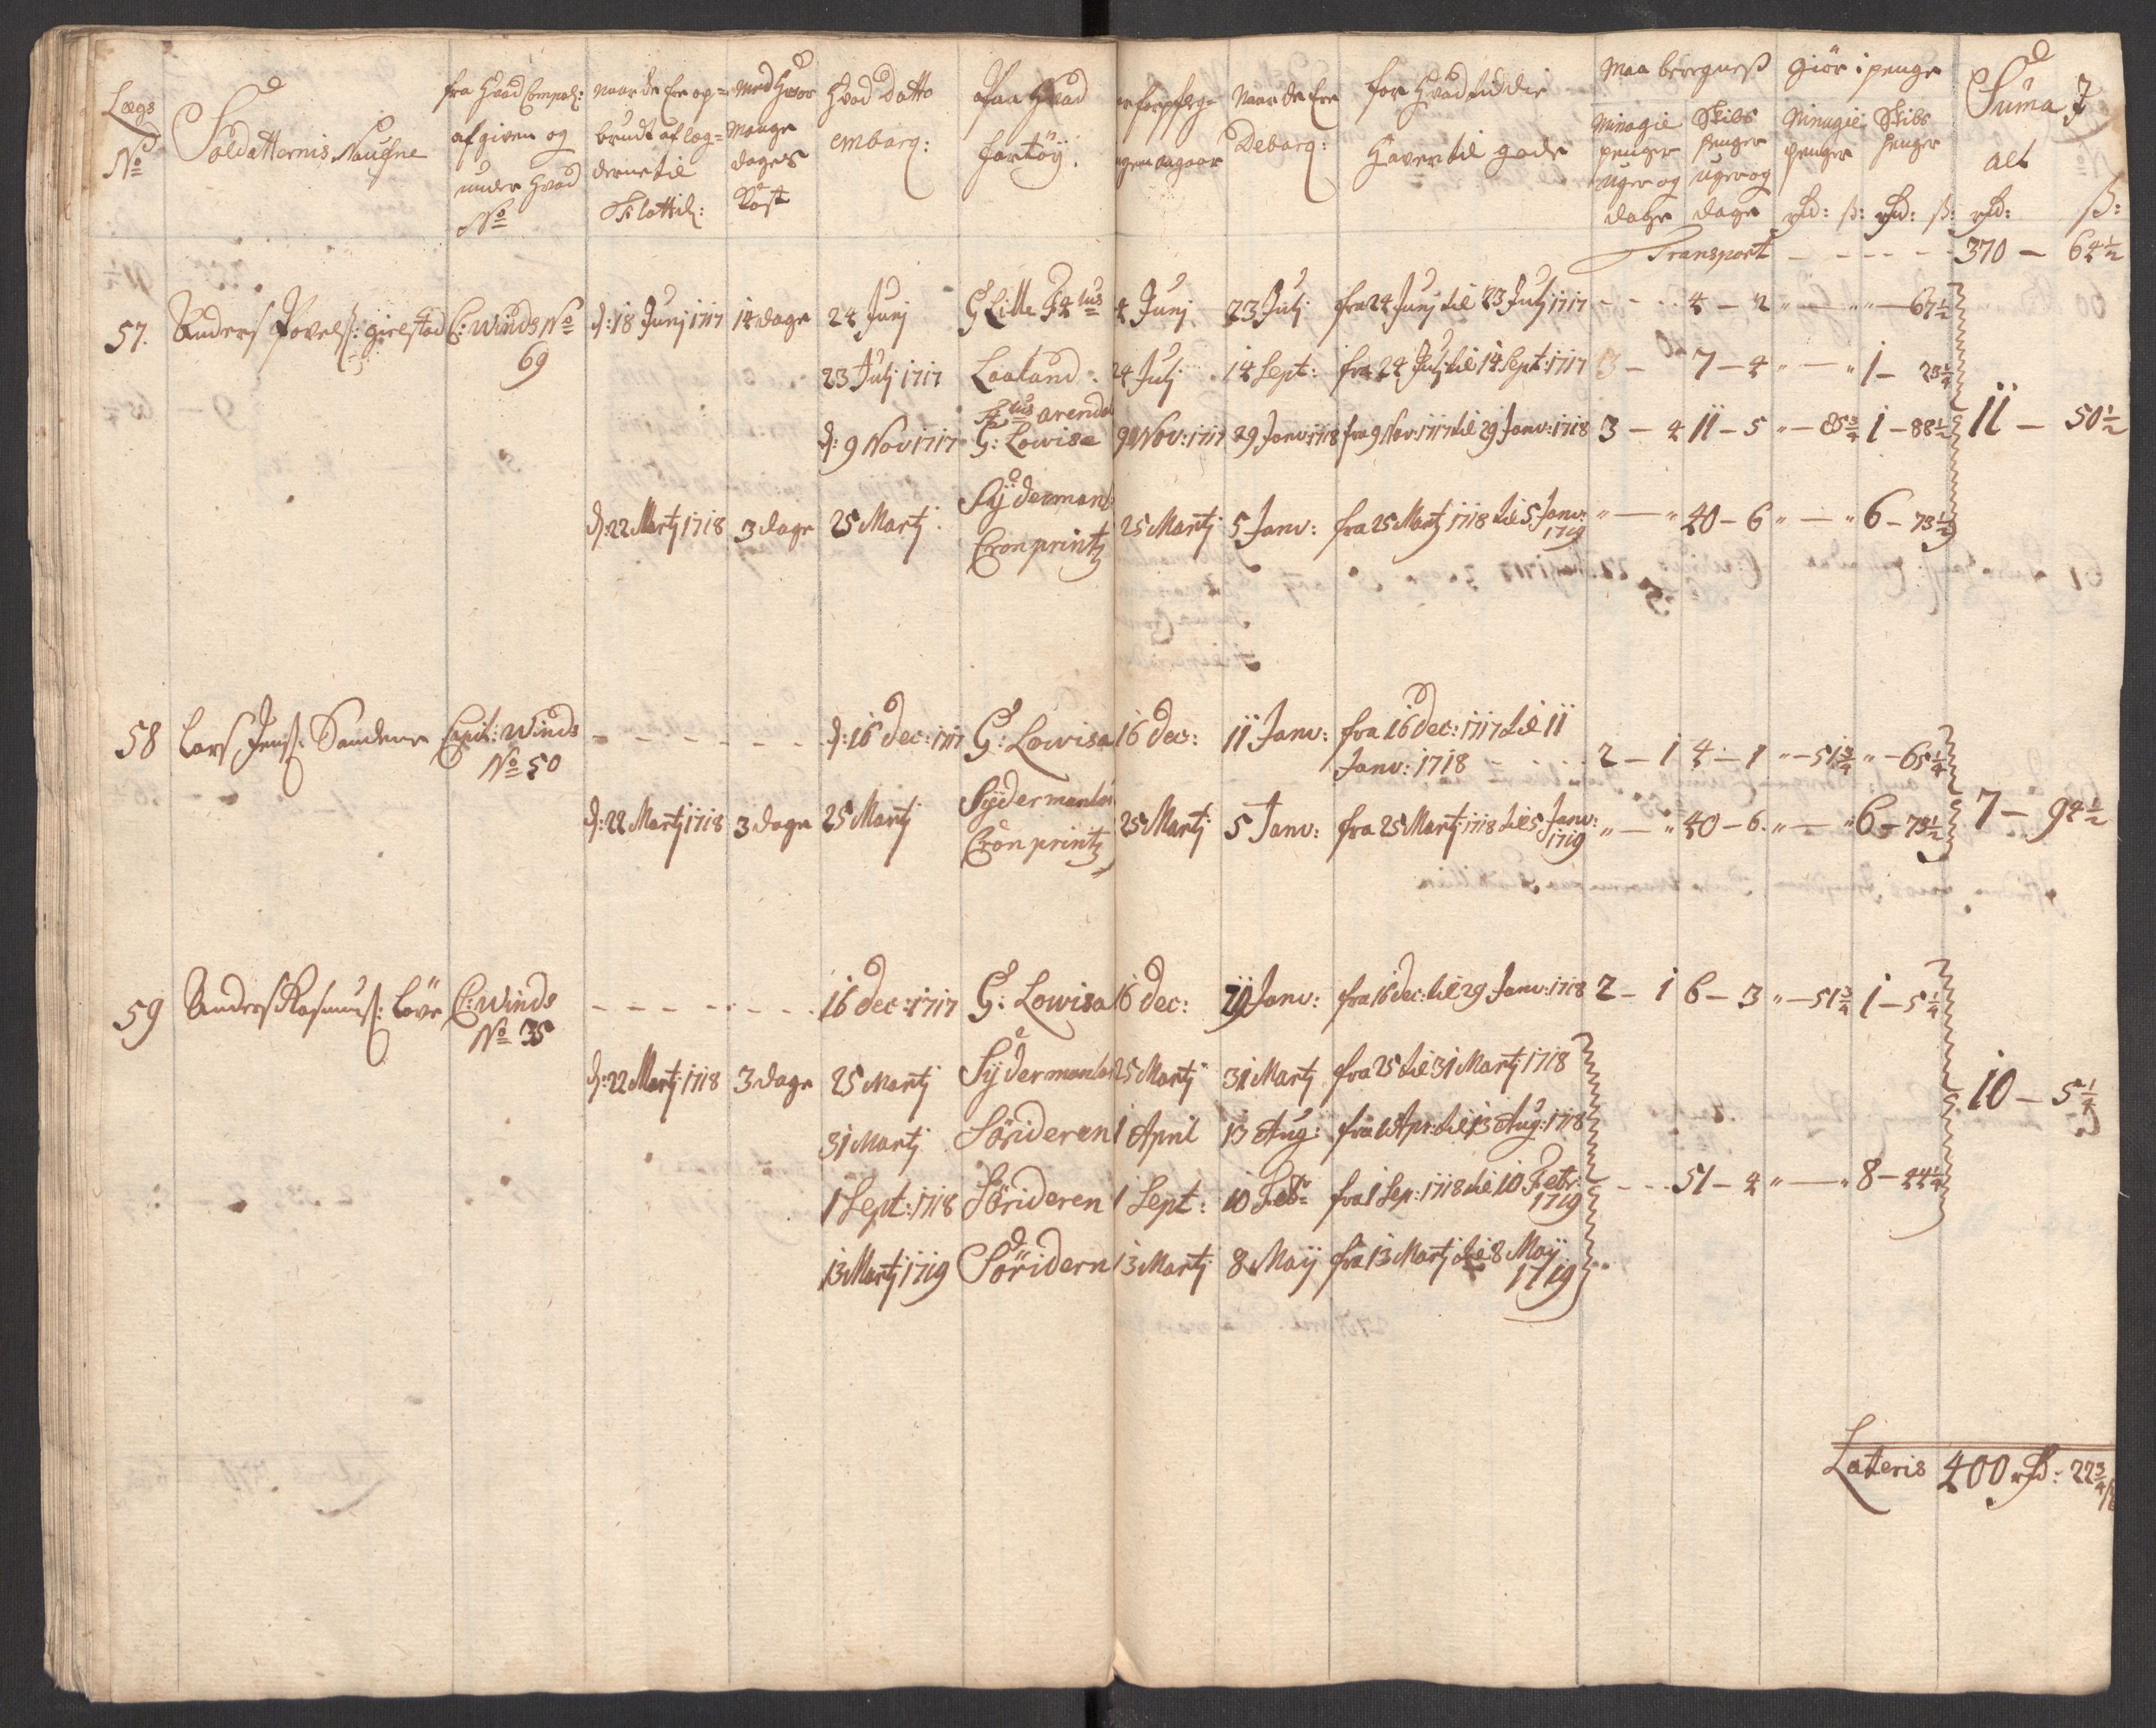 Lægs No
Soldatternis Naufne
fra Hvad Compag: afgiven og under Hvad No
naar de Ere op=brudt af læg=derne til Flottil:
Med Hvor Mange dages Kost
Hvad Datto embarq:
Paa Hvad fartöÿ:
Naar de Ere Debarq:
for Hvad tid die Haver til gode
Maa beregneß
Minagie penger Uger og dage
Skibs penger uger og dage
Giör i penge
Minagie penger rd: ß:
Skibs penger rd: ß:
Suma alt rd: ß:
Transport - - - - - 370 - 64½
57. Anders Povelß: gielstad C: Winds No 69 d: 18 Junj 1717 14 dage 24 Junj 4 Junj 23 Julj fra 24 Junj til 23 Julj 1717 - - - 4 - 2 " - " " - 67½
23 Julj 1717 Laaland 24 Julj 14 Sept: fra 24 Julj til 14 Sept: 1717 7 - 4 " - " 1 - 23¼
d: 9 Nov 1717 G: Lowisa 9 Nov: 1717 29 Janv: 1718 fra 9 Nov: 1717 til 29 Janv: 1718 3 - 4 11 - 5 " - 85¾ 1 - 88½ 11 - 50½
d: 22 Martj 1718 3 dage 25 Martj Sÿdermanl Cronprintz 25 Martj 5 Janv: fra 25 Martj 1718 til 5 Janv: 1719 " - " 40 - 6 " - " 6 - 73½
58 Lars Jenß: Sandene Capit: Winds No 50 - - - - - - d: 16 Dec: 1717 G: Lowisa 16 Dec: 11 Janv: fra 16 Dec: 1717 til 11
Janv: 1718 - - - 2 - 1 4 - 1 " - 51¾ " - 65¼
d: 22 Martj 1718 3 dage 25 Martj Sÿdermanla Cronprintz 25 Martj 5 Janv: fra 25 Martj 1718 til 5 Janv: 1719 " - " 40 - 6 " - " 6 - 73½ 7 - 94½
59 Anders Rasmusß: Löve C: Winds No 35 - - - - - - 16 Dec: 1717 G: Lowisa 16 Dec: 29 Janv: fra 16 Dec: til 29 Janv: 1718 2 - 1 6 - 3 " - 51¾ 1 - 5¼
d: 22 Martj 1718 3 dage 25 Martj Sÿdermanla 25 Martj 31 Martj fra 25 til 31 Martj 1718
31 Martj Söridderen 1 April 13 Aug: fra 1 Apr: til 13 Aug: 1718 10 - 5¼
1 Sept: 1718 Sörideren 1 Sept: 10 Feb: fra 1 Sep: 1718 til 10 Febr: 1719 - - - 51 - 4 " - " 8 - 44¼
13 Martj 1719 Söridern 13 Martj 8 Maÿ fra 13 Martj til 8 Maÿ 1719
Lateris 400 rd: 22¾ ß